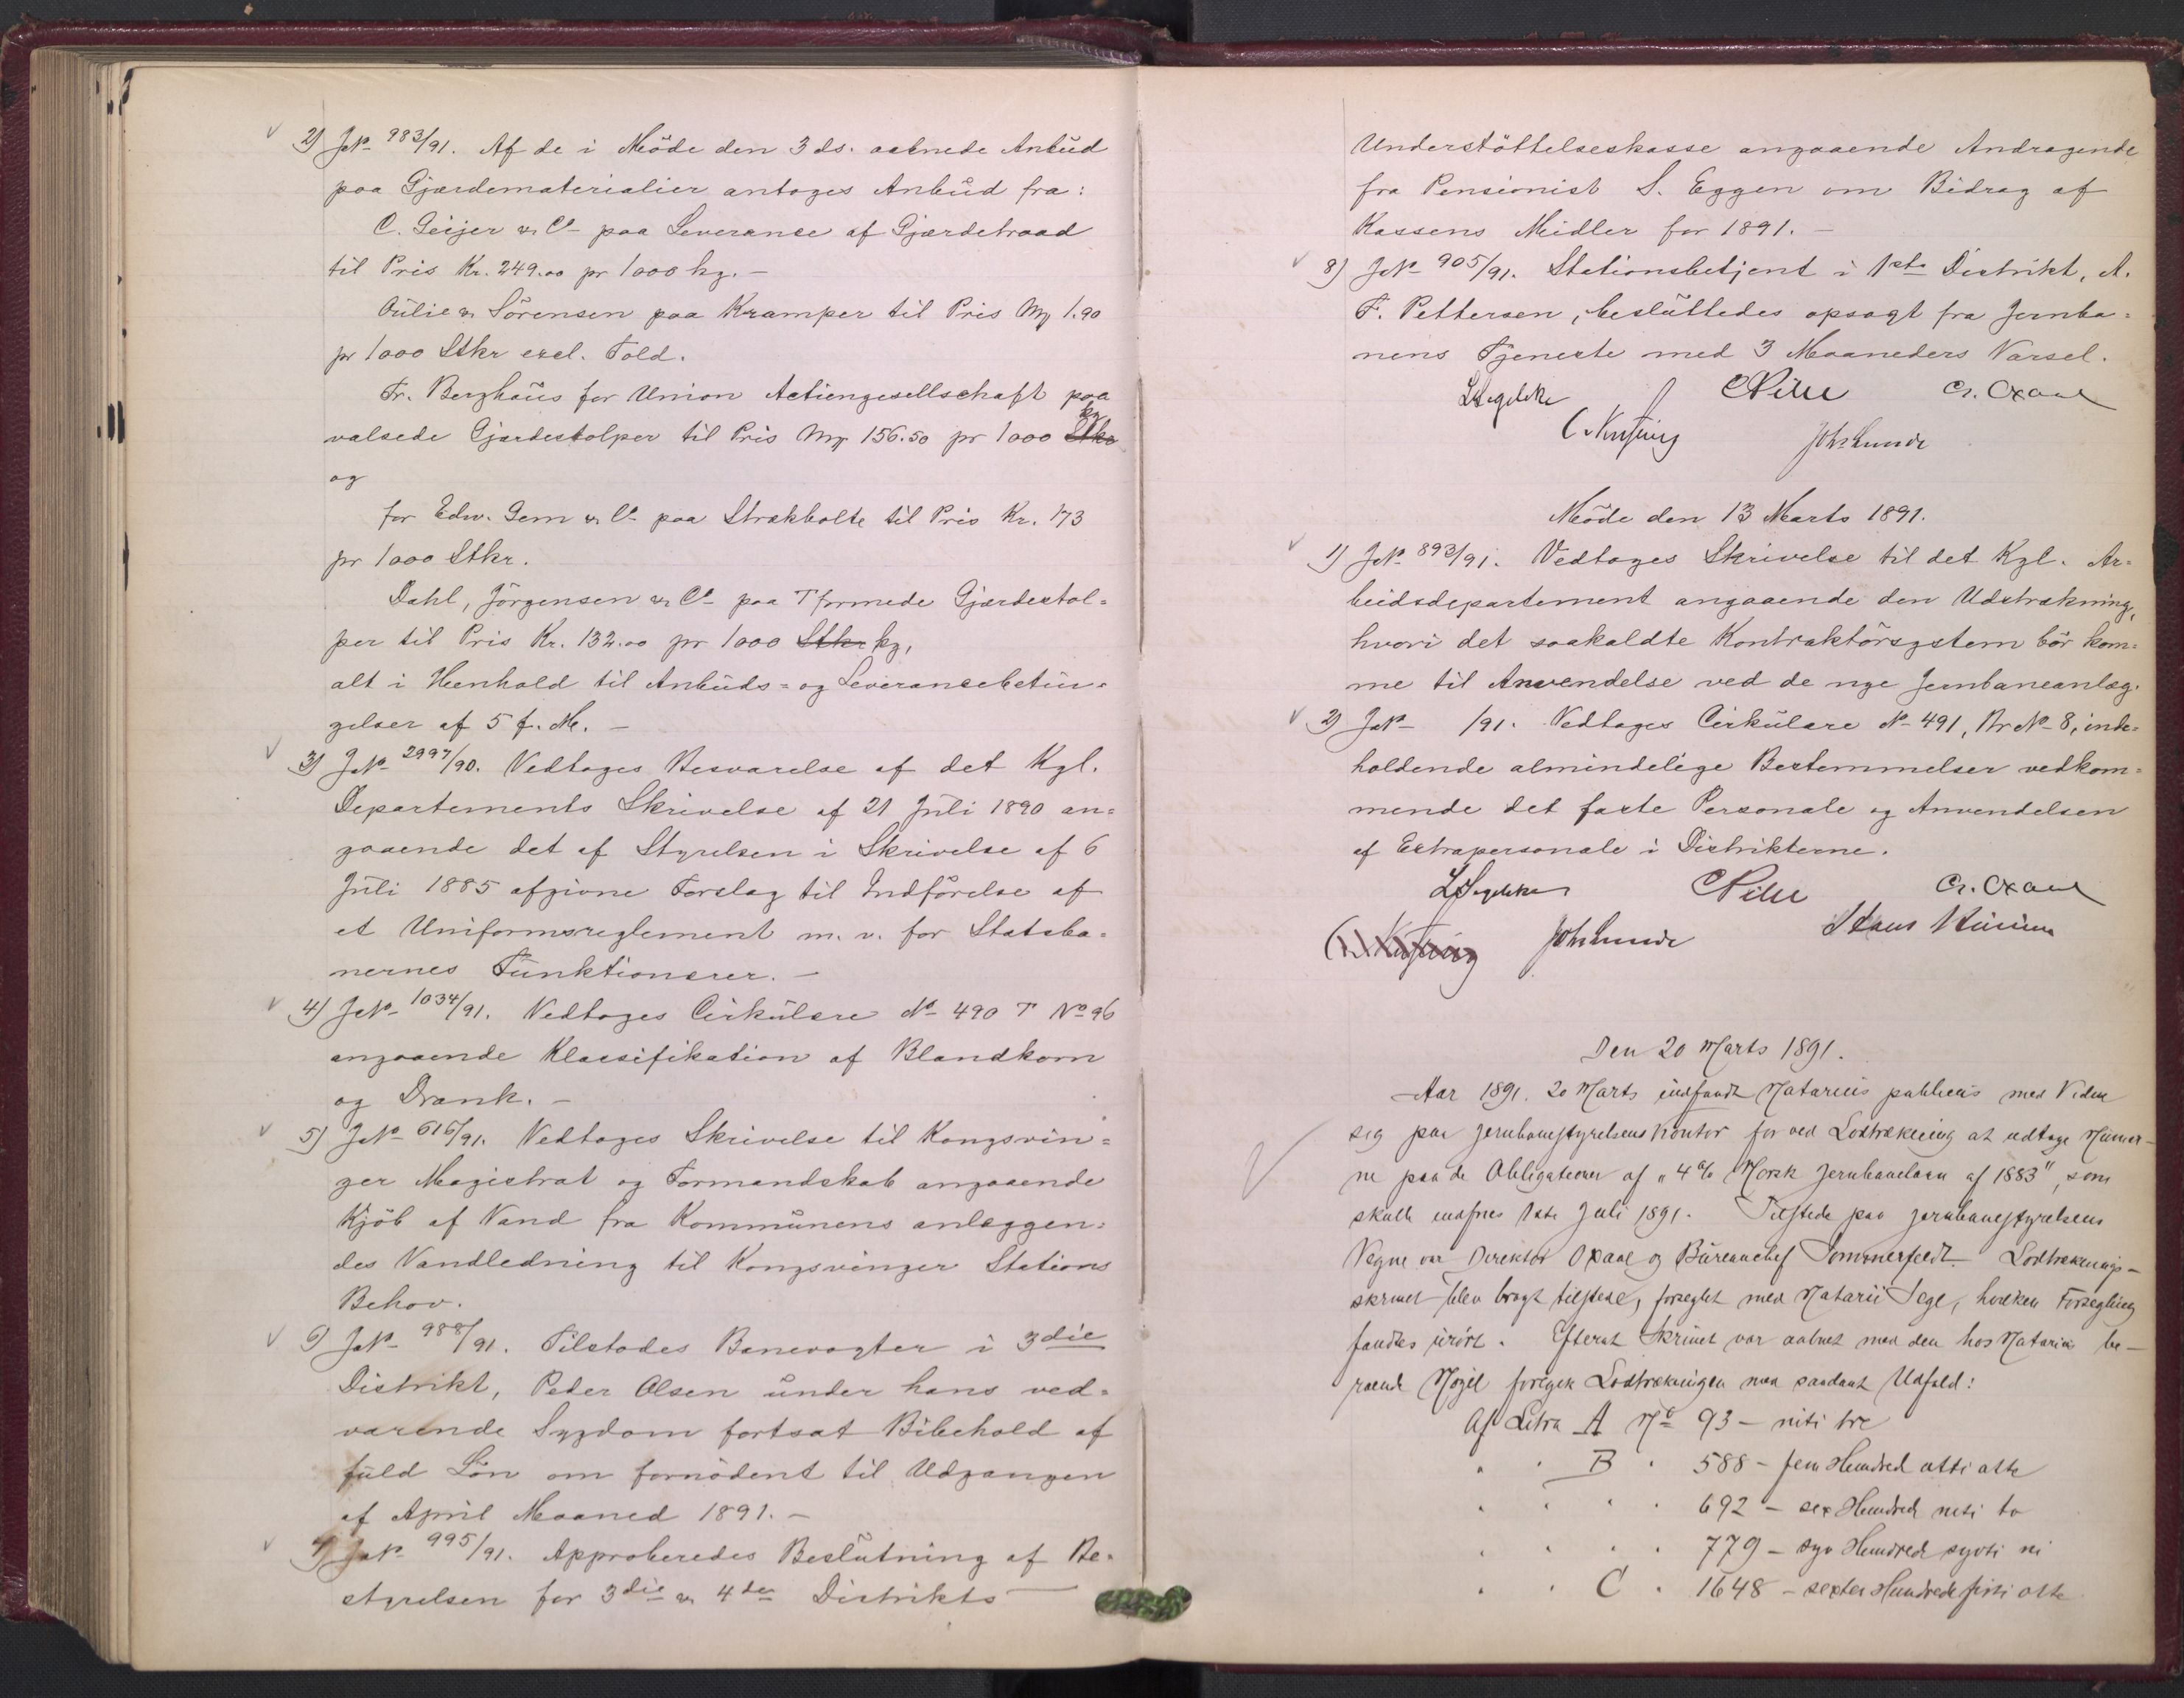 2) JNo 983/91. Af de i Möde den 3 ds. aabnede Anbud
paa Gjærdematerialier antoges Anbud fra:
C. Geijer & Co paa Leverance af Gjærdetraad
til Pris Kr. 249.00 pr 1000 kg. –
Aulie & Sörensen paa Kramper til Pris Mk 1.90
pr 1000 Stkr excl. Told.
Fr. Berghaus for Union Actiengesellschaft paa
valsede Gjærdestolper til Pris Mk 156.50 pr 1000 Stkr kg
og
for Edw. Gem & Co paa Strækbolte til Pris Kr. 173
pr 1000 Stkr.
Dahl, Jörgensen & Co paa T formede Gjærdestol=
per til Pris Kr. 132.00 pr 1000 Stkr kg,
alt i Henhold til Anbuds= og Leverancebetin=
gelser af 5 f. M. –
3) JNo 2997/90. Vedtoges Besvarelse af det Kgl.
Departements Skrivelse af 21 Juli 1890 an=
gaaende det af Styrelsen i Skrivelse af 6
Juli 1885 afgivne Forslag til Indförelse af
et Uniformsreglement m. v. for Statsba=
nernes Funktionærer. –
4) JNo 1034/91. Vedtoges Cirkulære No 490 T No 96
angaaende Klassifikation af Blandkorn
og Drank. –
5) JNo 616/91. Vedtoges Skrivelse til Kongsvin=
ger Magistrat og Formandskab angaaende
Kjöb af Vand fra Kommunens anlæggen=
des Vandledning til Kongsvinger Stations
Behov.
6) JNo 988/91. Tilstodes Banevogter i 3die
Distrikt, Peder Olsen under hans ved=
varende Sygdom fortsat Bibehold af
fuld Lön om fornödent til Udgangen
af April Maaned 1891. –
7) JNo 995/91. Approberedes Beslutning af Be=
styrelsen for 3die & 4de Distrikts
Understöttelseskasse angaaende Andragende
fra Pensionist S. Eggen om Bidrag af
Kassens Midler for 1891. –
8) JNo 905/91. Stationsbetjent i 1ste Distrikt, A.
F. Pettersen, besluttedes opsagt fra Jernba=
nens Tjeneste med 3 Maaneders Varsel.
LSegelcke CPihl Cr. Oxaal
Joh. Lunde
Möde den 13 Marts 1891.
1) JNo 893/91. Vedtoges Skrivelse til det Kgl. Ar=
beidsdepartement angaaende den Udstrækning,
hvori det saakaldte Kontraktörsystem bör kom=
me til Anvendelse ved de nye Jernbaneanlæg.
2) JNo /91. Vedtoges Cirkulære No 491, Br No 8, inde=
holdende almindelige Bestemmelser vedkom=
mende det faste Personale og Anvendelsen
af Extrapersonale i Distrikterne.
LSegelcke CPihl Cr. Oxaal
Joh. Lunde
Den 20 Marts 1891.
Aar 1891. 20 Marts indfandt Notarius publicus med Vidner
sig paa Jernbanestyrelsens Kontor for ved Lodtrækning at udtage Numer-
ne paa de Obligationer af "4 % Norsk Jernbanelaan af 1883", som
skulle indfries 1ste Juli 1891. Tilstede paa Jernbanestyrelsens
Vegne var Direktör Oxaal og Bureauchef Sommerfeldt. Lodtræknings-
skrinet blev bragt tilstede, forseglet med Notarii Segl, hvilken Forsegling
fandtes urört. Efterat Skrinet var aabnet med den hos Notarius be-
roende Nögel foregik Lodtrækningen med saadant Udfald:
Af Litra A No 93 – niti tre
" " B " 588 – fem Hundred otti otte
" " " " 692 – sex Hundred niti to
" " " " 779 – syv Hundrede sytti ni
" " C " 1648 – sexten Hundrede firti otte